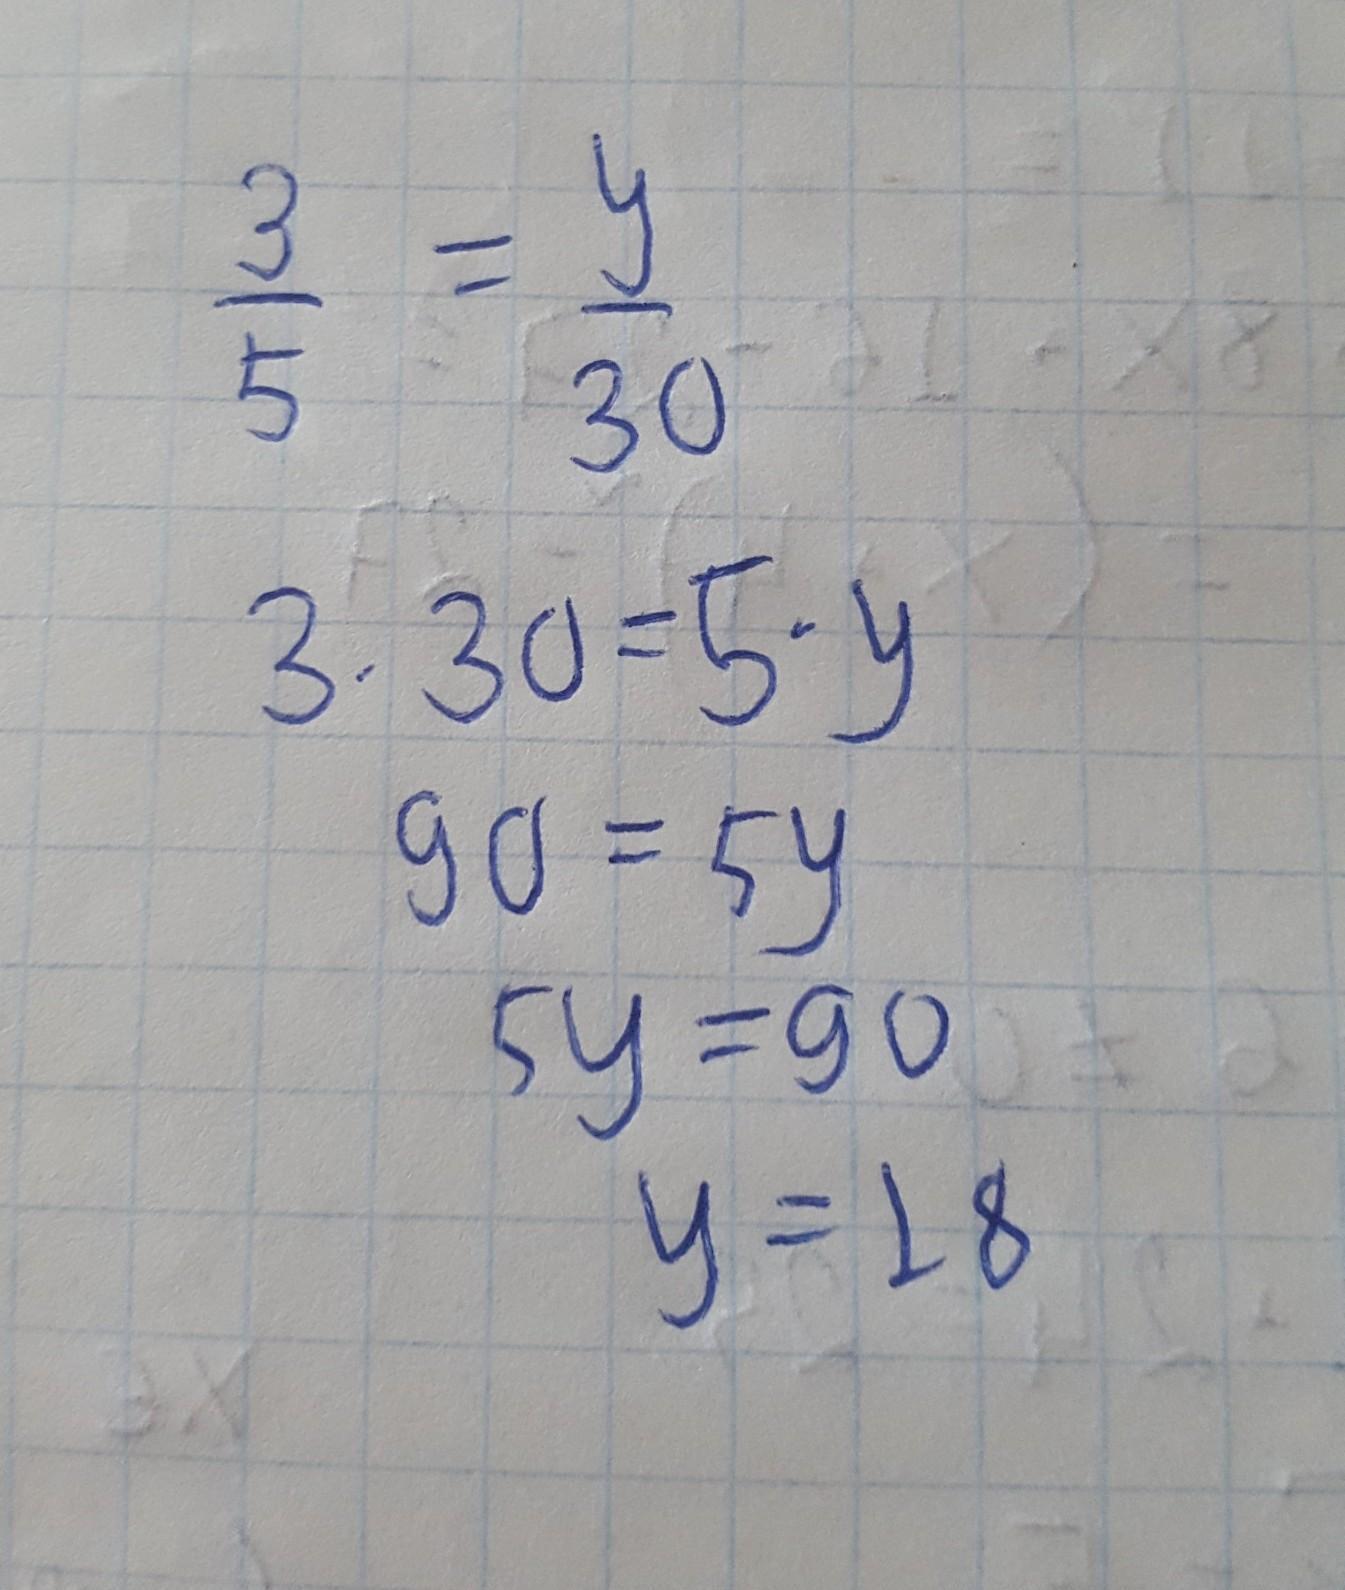 3/5 = y/30
3 · 30 = 5 · y
90 = 5y
5y = 90
y = 18